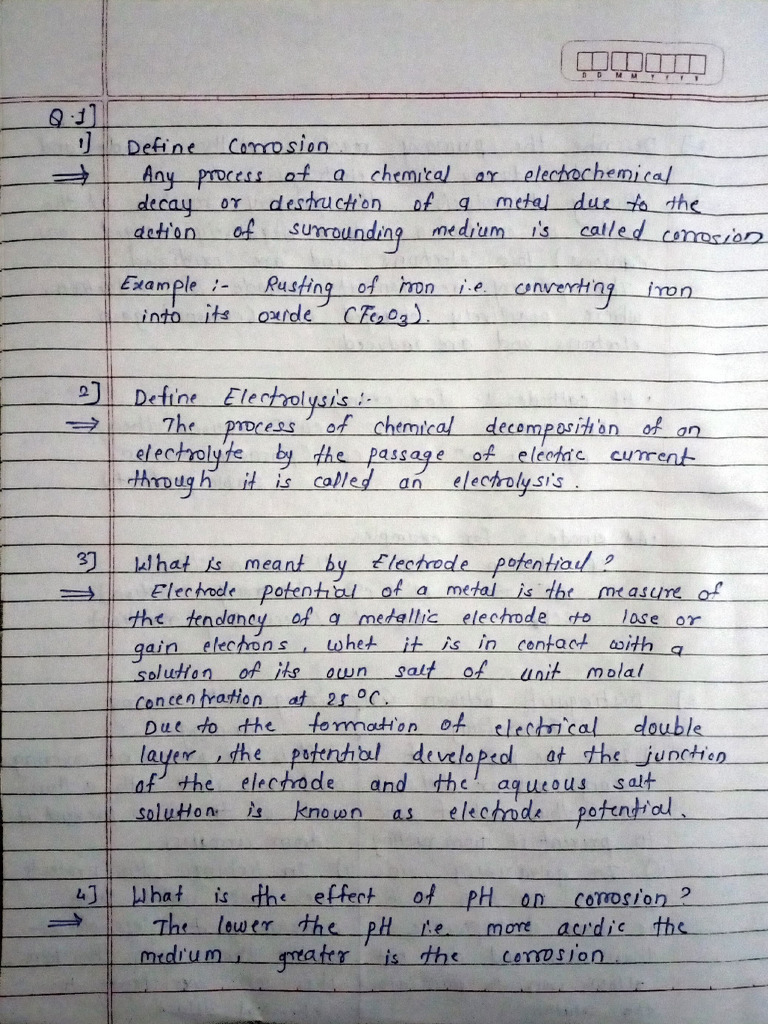 D D M M Y Y Y Y
Q.1]
1] Define Corrosion
⇒ Any process of a chemical or electrochemical
decay or destruction of a metal due to the
action of surrounding medium is called corrosion
Example :- Rusting of iron i.e. converting iron
into its oxide (Fe₂O₃).
2] Define Electrolysis :-
⇒ The process of chemical decomposition of an
electrolyte by the passage of electric current
through it is called an electrolysis.
3] What is meant by Electrode potential ?
⇒ Electrode potential of a metal is the measure of
the tendancy of a metallic electrode to lose or
gain electrons, whet it is in contact with a
solution of its own salt of unit molal
concentration at 25 °C.
Due to the formation of electrical double
layer, the potential developed at the junction
of the electrode and the aqueous salt
solution is known as electrode potential.
4] What is the effect of pH on corrosion ?
⇒ The lower the pH i.e. more acidic the
medium, greater is the corrosion.